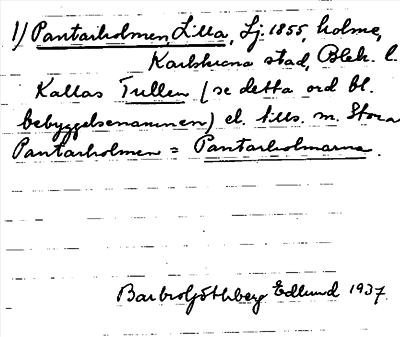 1) Pantarholmen, Lilla, Sj. 1855, holme,
Karlskrona stad, Blek. l.
Kallas Tullen (se detta ord bl.
bebyggelsenamnen) el. tills. m. Stora
Pantarholmen = Pantarholmarna.
Barbro Göthberg Edlund 1937.